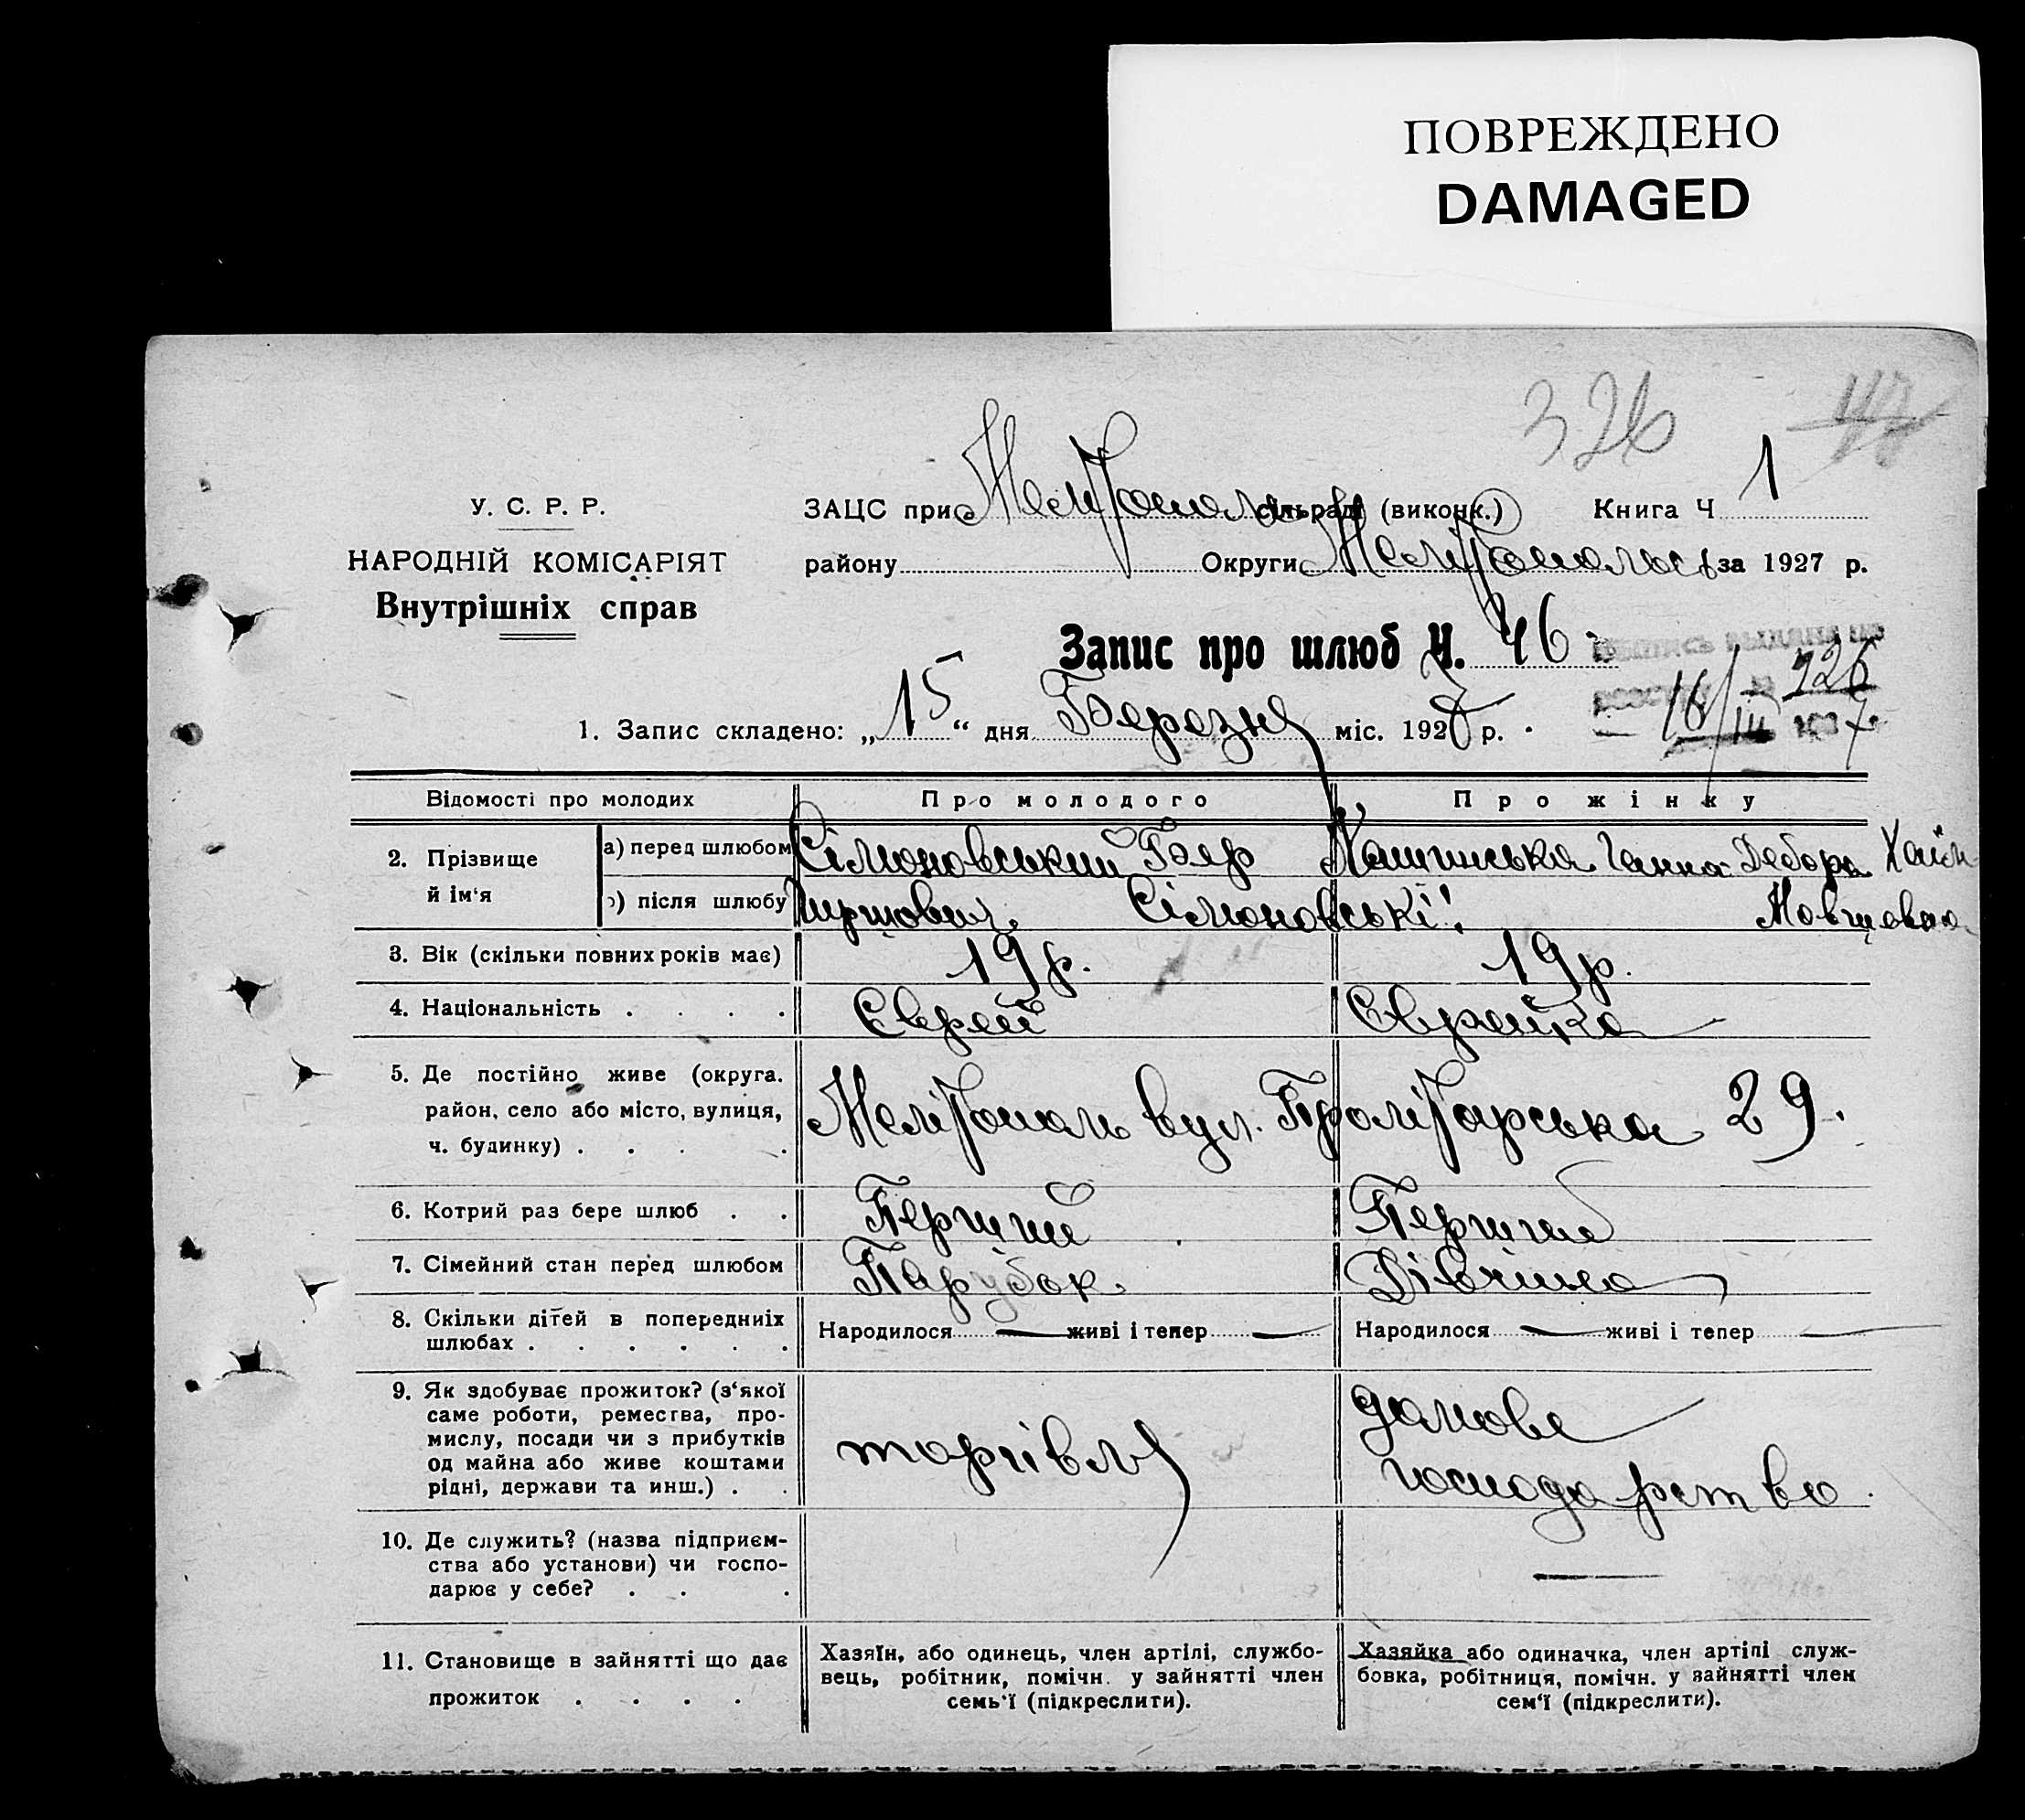 ПОВРЕЖДЕНО
DAMAGED
326
У. С. Р. Р.
ЗАЦС при Мелітополь сільраді (виконк.) Книга Ч 1
НАРОДНІЙ КОМІСАРІЯТ
району Округи Мелітопольськ за 1927 р.
Внутрішніх справ
Запис про шлюб Ч. 46.
1. Запис складено: „15“ дня Березня міс. 1927 р.
Відомості про молодих Про молодого Про жінку
2. Прізвище й ім‘я
а) перед шлюбом Сімоновський Бер Кашинська Ганна Дебора Хаїм
) після шлюбу Гиршович. Сімоновські! Мовшовна
3. Вік (скільки повних років має) 19 р. 19 р.
4. Національність Єврей Єврейка
5. Де постійно живе (округа.
район, село або місто, вулиця, Мелітополь вул. Пролітарська 29.
ч. будинку)
6. Котрий раз бере шлюб Перший Перший
7. Сімейний стан перед шлюбом Парубок Дівчина
8. Скільки дітей в попередниіх Народилося — живі і тепер — Народилося — живі і тепер —
шлюбах
9. Як здобуває прожиток? (з‘якої
саме роботи, ремества, про-
мислу, посади чи з прибутків
од майна або живе коштами
рідні, держави та инш.)
торгівля
домове
господарство
10. Де служить? (назва підприєм-
ства або установи) чи госпо-
дарює у себе? —
11. Становище в зайнятті що дає
прожиток
Хазяїн, або одинець, член артілі, службо-
вець, робітник, помічн. у зайнятті член
семь‘ї (підкреслити).
Хазяйка або одиначка, член артілі служ-
бовка, робітниця, помічн. у зайнятті член
сем‘ї (підкреслити).